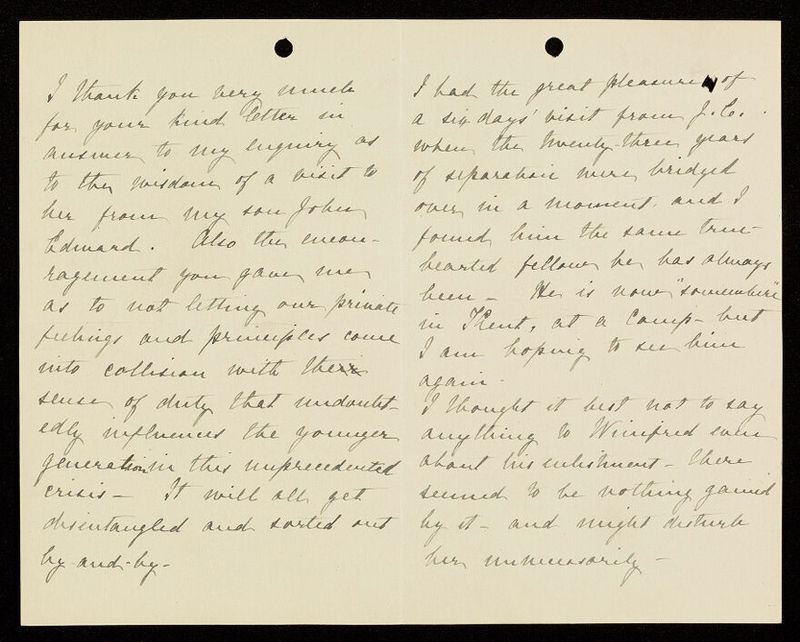 I thank you very much
for your kind letter in
answer to my enquiry as
to the wisdom of a visit to
her from my son John
Edward. Also the encou-
ragement you gave me
as to not letting our private
feelings and principles come
into collision with their
sense of duty that undoubt-
edly influences the younger
generation in this unprecedented
crisis – It will all get
disentangled and sorted out
by-and-by –
I had the great pleasure of
a six days' visit from J.E.
when the twenty-three years
of separation were bridged
over in a moment and I
found him the same true-
hearted fellow he has always
been – He is now "somewhere"
in Kent, at a Camp – but
I am hoping to see him
again.
I thought it best not to say
anything to Winifred even
about his enlistment – There
seemed to be nothing gained
by it – and might disturb
her unnecessarily –